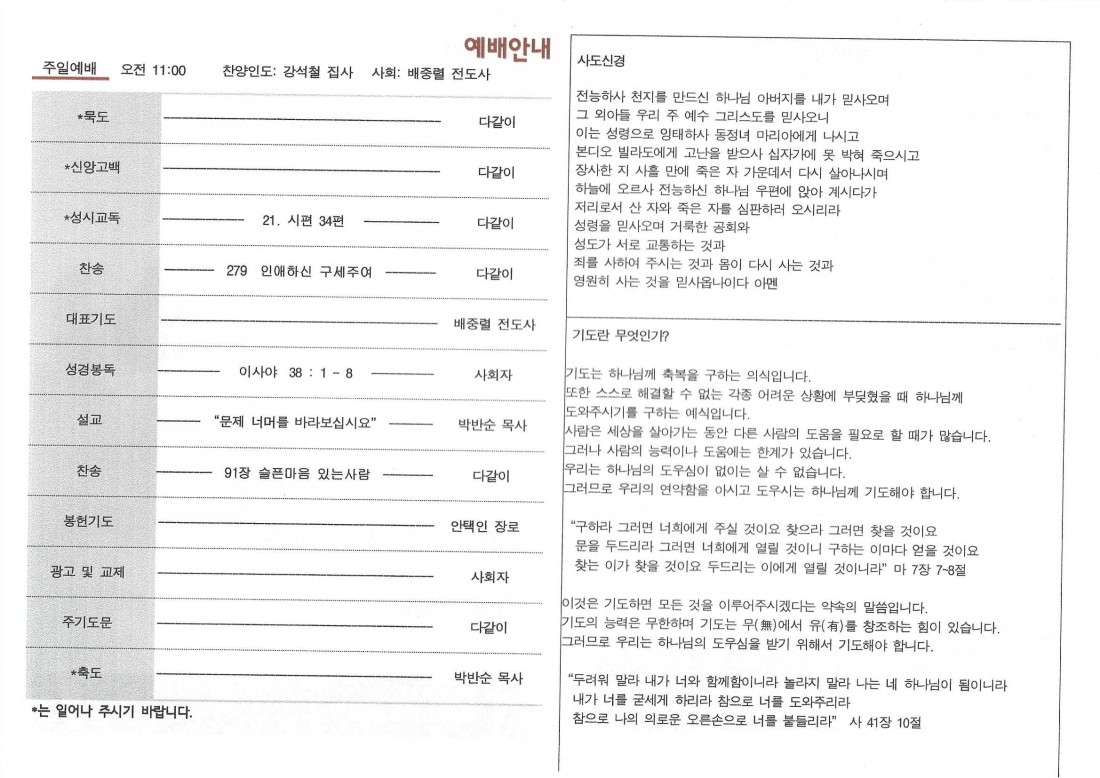 예배안내
주일예배 오전 11:00 찬양인도: 강석철 집사 사회: 배중렬 전도사
*묵도 다같이
*신앙고백 다같이
*성시교독 21. 시편 34편 다같이
찬송 279 인애하신 구세주여 다같이
대표기도 배중렬 전도사
성경봉독 이사야 38 : 1 - 8 사회자
설교 "문제 너머를 바라보십시요" 박반순 목사
찬송 91장 슬픈마음 있는사람 다같이
봉헌기도 안택인 장로
광고 및 교제 사회자
주기도문 다같이
*축도 박반순 목사
*는 일어나 주시기 바랍니다.
사도신경
전능하사 천지를 만드신 하나님 아버지를 내가 믿사오며
그 외아들 우리 주 예수 그리스도를 믿사오니
이는 성령으로 잉태하사 동정녀 마리아에게 나시고
본디오 빌라도에게 고난을 받으사 십자가에 못 박혀 죽으시고
장사한 지 사흘 만에 죽은 자 가운데서 다시 살아나시며
하늘에 오르사 전능하신 하나님 우편에 앉아 계시다가
저리로서 산 자와 죽은 자를 심판하러 오시리라
성령을 믿사오며 거룩한 공회와
성도가 서로 교통하는 것과
죄를 사하여 주시는 것과 몸이 다시 사는 것과
영원히 사는 것을 믿사옵나이다 아멘
기도란 무엇인가?
기도는 하나님께 축복을 구하는 의식입니다.
또한 스스로 해결할 수 없는 각종 어려운 상황에 부딪혔을 때 하나님께
도와주시기를 구하는 예식입니다.
사람은 세상을 살아가는 동안 다른 사람의 도움을 필요로 할 때가 많습니다.
그러나 사람의 능력이나 도움에는 한계가 있습니다.
우리는 하나님의 도우심이 없이는 살 수 없습니다.
그러므로 우리의 연약함을 아시고 도우시는 하나님께 기도해야 합니다.
"구하라 그러면 너희에게 주실 것이요 찾으라 그러면 찾을 것이요
문을 두드리라 그러면 너희에게 열릴 것이니 구하는 이마다 얻을 것이요
찾는 이가 찾을 것이요 두드리는 이에게 열릴 것이니라" 마 7장 7~8절
이것은 기도하면 모든 것을 이루어주시겠다는 약속의 말씀입니다.
기도의 능력은 무한하며 기도는 무(無)에서 유(有)를 창조하는 힘이 있습니다.
그러므로 우리는 하나님의 도우심을 받기 위해서 기도해야 합니다.
"두려워 말라 내가 너와 함께함이니라 놀라지 말라 나는 네 하나님이 됨이니라
내가 너를 굳세게 하리라 참으로 너를 도와주리라
참으로 나의 의로운 오른손으로 너를 붙들리라" 사 41장 10절